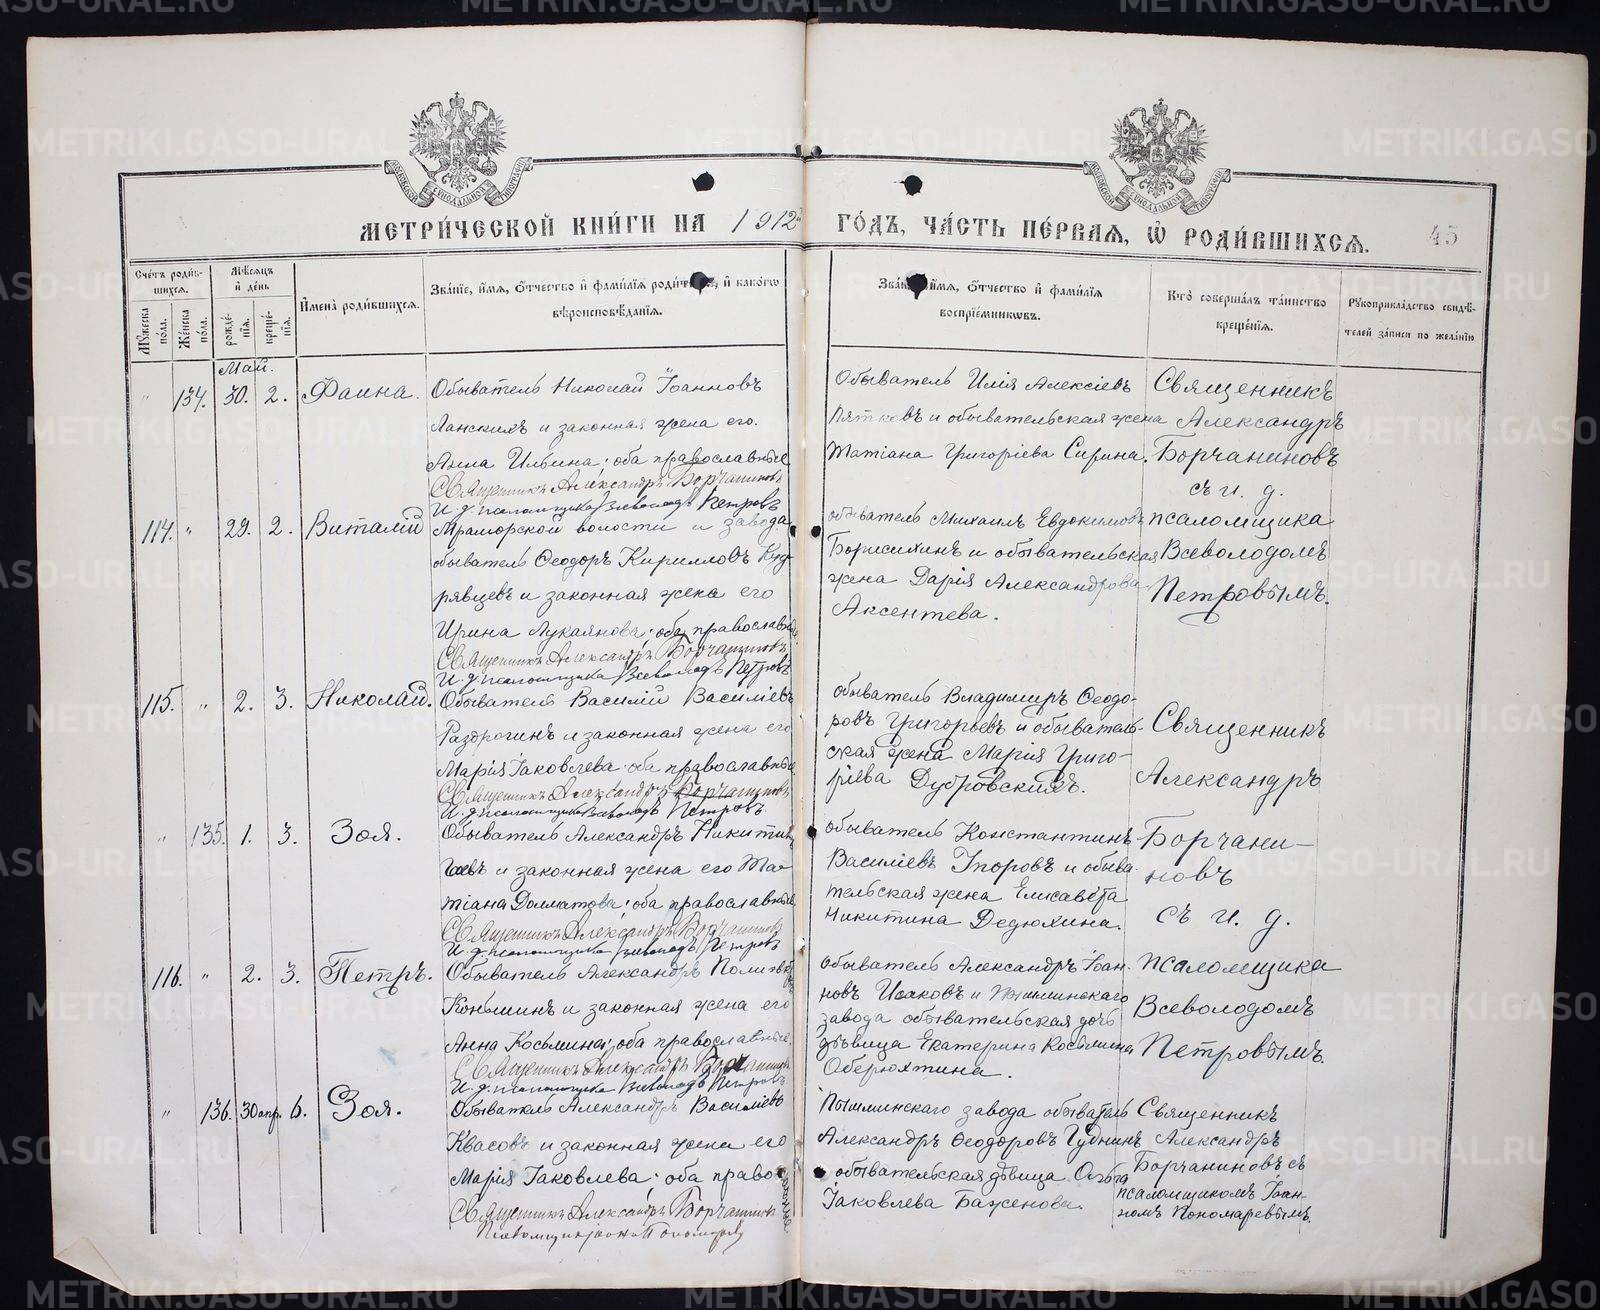 МЕТРИ́ЧЕСКОЙ КНИ́ГИ НА 1912й ГО́ДЪ, ЧА́СТЬ ПЕ́РВАЯ, Ѡ РОДИ́ВШИХСЯ. 45
Сче́тъ роди́в-
шихся.
Мѣ́сяцъ
и де́нь
Мꙋжеска по́ла.
Же́нска по́ла.
рожде́-
нїя.
креще́-
нїя.
Имена́ роди́вшихся.
Зва́нїе, и́мя, о́тчество и фами́лїя роди́телей, и како́гѡ
вѣроисповѣ́данїя.
Зва́нїе, и́мя, о́тчество и фами́лїя
воспрїе́мниковъ.
Кто̀ соверша́лъ та́инство
креще́нїя.
Рꙋкоприкла́дство свидѣ́-
телей за́писи по жела́нїю
Май.
" 134. 30. 2. Фаина.
Обыватель Николай Іоанновъ
Ланскихъ и законная жена его
Анна Ильина; оба православные
Священникъ Александръ Борчаниновъ
И. д. псаломщика Всеволодъ Петровъ
Обыватель Илія Алексіевъ
Пятковъ и обывательская жена
Татіана Григоріева Сирина.
Священникъ
Александръ
Борчаниновъ
съ и. д.
псаломщика
Всеволодомъ
Петровымъ.
114. " 29. 2. Виталій
Мраморской волости и завода
обыватель Ѳеодоръ Кирилловъ Куд
рявцевъ и законная жена его
Ирина Лукаянова; оба православные
Священникъ Александръ Борчаниновъ
И. д. псаломщика Всеволодъ Петровъ
обыватель Михаилъ Евдокимовъ
Борисихинъ и обывательская
жена Дарія Александрова
Аксентева.
115. " 2. 3. Николай.
Обыватель Василій Василіевъ
Раздрогинъ и законная жена его
Марія Іаковлева; оба православные
Священникъ Александръ Борчаниновъ
И. д. псаломщика Всеволодъ Петровъ
обыватель Владимиръ Ѳеодо-
ровъ Григорьевъ и обыватель-
ская жена Марія Григо-
ріева Дубровскихъ.
Священникъ
Александръ
Борчани-
новъ
съ и. д.
псаломщика
Всеволодомъ
Петровымъ
" 135. 1. 3. Зоя.
Обыватель Александръ Никитин
и законная жена его Та-
тіана Долматова; оба православные
Священникъ Александръ Борчаниновъ
И. д. псаломщика Всеволодъ Петровъ
обыватель Константинъ
Василіевъ и обыва-
тельская жена Елисавета
Никитина Дедюхина.
116. " 2. 3. Петръ.
Обыватель Александръ
Коньшинъ и законная жена его
Анна Косьмина; оба православные.
Священникъ Александръ Борчаниновъ
И. д. псаломщика Всеволодъ Петровъ
обыватель Александръ Іоан-
новъ Исаковъ и Пышминскаго
завода обывательская дочь
дѣвица Екатерина Косьмина
Оберюхтина.
" 136. 30 апр. 6. Зоя.
Обыватель Александръ Василіевъ
Квасовъ и законная жена его
Марія Іаковлева; оба право
славные
Священникъ Александръ Борчаниновъ
Псаломщикъ Іоаннъ Пономаревъ
Пышминскаго завода обыватель
Александръ Ѳеодоровъ Губинъ
обывательская дѣвица Ольга
Іаковлева Баженова.
Священникъ
Александръ
Борчаниновъ съ
псаломщикомъ Іоан-
номъ Пономаревымъ.
METRIKI.GASO-URAL.RU